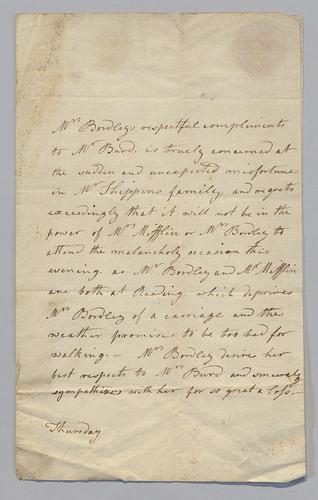 Mrs Bordley's, respectful compliments
to Mr Burd, is truely concerned at
the sudden and unexpected misfortune
in Mr Shippens family, and regrets
exceedingly that it will not be in the
power of Mrs Mifflin or Mrs Bordley to
attend the melancholy occasion this
evening. as Mr Bordley and Mr Mifflin
are both at Reading. which deprives
Mrs Bordley of a carriage and the
weather promises to be too bad for
walking.— Mrs Bordley desires her
best respects to Mrs Burd and sincerely
sympathizes with her for so great a loss.—
Thursday